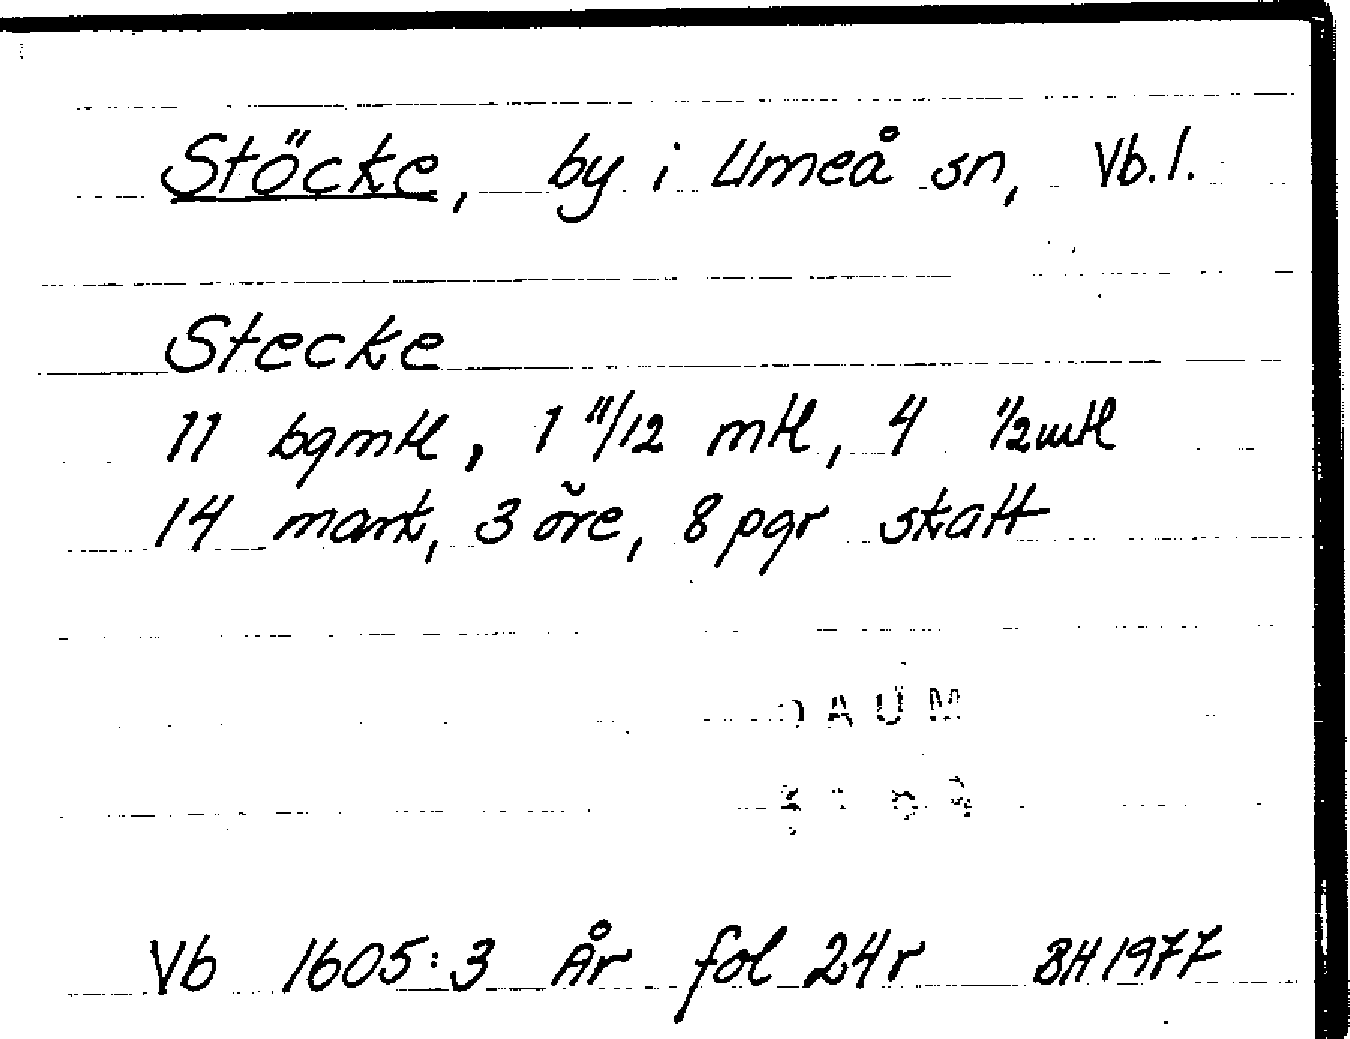 Stöcke, by i Umeå sn, Vb.l.
Stecke
11 bgmtl, 1 11/12 mtl, 4 1/2mtl
14 mark, 3 öre, 8 pgr skatt
DAUM
Vb 1605:3 År fol 24r BH 1977